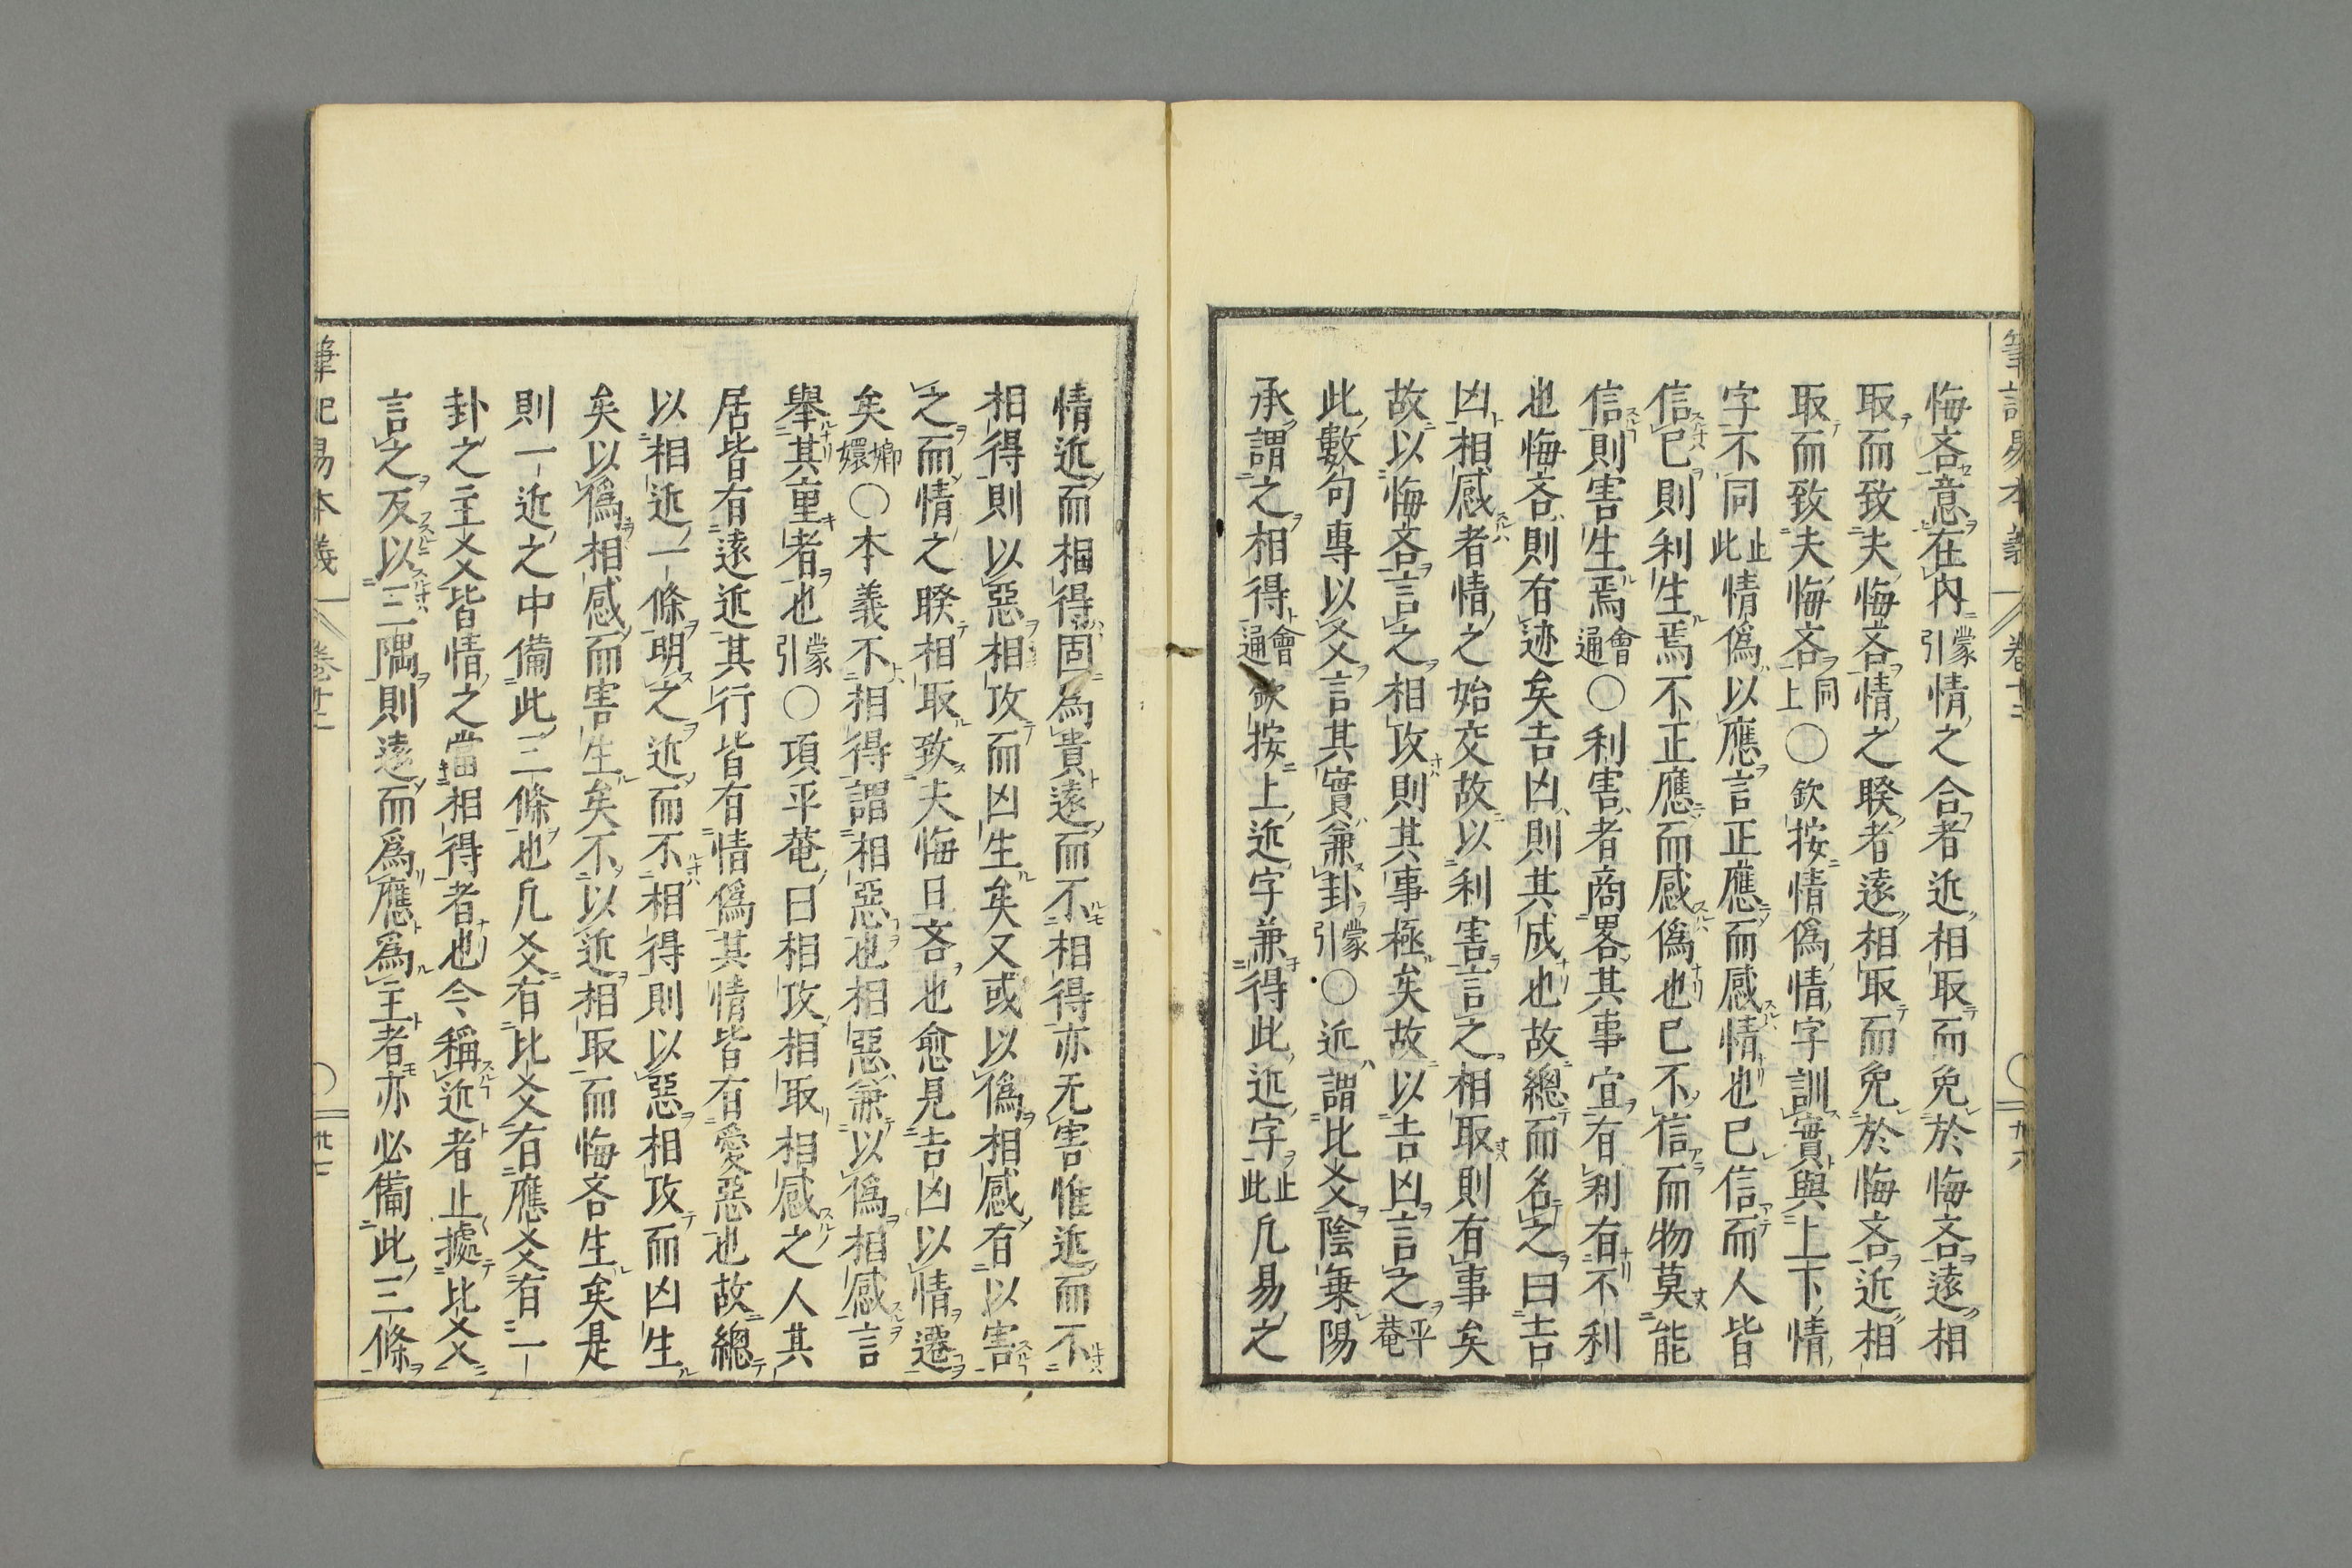 筆記易本義 卷十二 九六
悔吝意在內蒙引情之合者近相取而免於悔吝遠相
取而致夫悔吝情之睽者遠相取而免於悔吝近相
取而致夫悔吝同上○欽按情僞情字訓實與上下情
字不同止此情僞以應言正應而感情也已信而人皆
信已則利生焉不正應而感僞也已不信而物莫能
信則害生焉會通○利害者商畧其事宜有利有不利
也悔吝則有迹矣吉凶則其成也故總而名之曰吉
凶相感者情之始交故以利害言之相取則有事矣
故以悔吝言之相攻則其事極矣故以吉凶言之平菴
此數句專以爻言其實兼卦蒙引○近謂比爻陰乗陽
承謂之相得會通欽按上近字兼得此近字止此凡易之
情近而相得固為貴遠而不相得亦无害惟近而不
相得則以惡相攻而凶生矣又或以僞相感有以害
之而情之睽相取致夫悔且吝也愈見吉凶以情遷
矣嫏嬛○本義不相得謂相惡也相惡兼以僞相感言
舉其重者也蒙引○項平菴曰相攻相取相感之人其
居皆有遠近其行皆有情僞其情皆有愛惡也故總
以相近一條明之近而不相得則以惡相攻而凶生
矣以僞相感而害生矣不以近相取而悔吝生矣是
則一近之中備此三條也凡爻有比爻有應爻有一
卦之主爻皆情之當相得者也今稱近者止據比爻
言之反以三隅則遠而爲應爲主者亦必備此三條
筆記易本義 卷十二